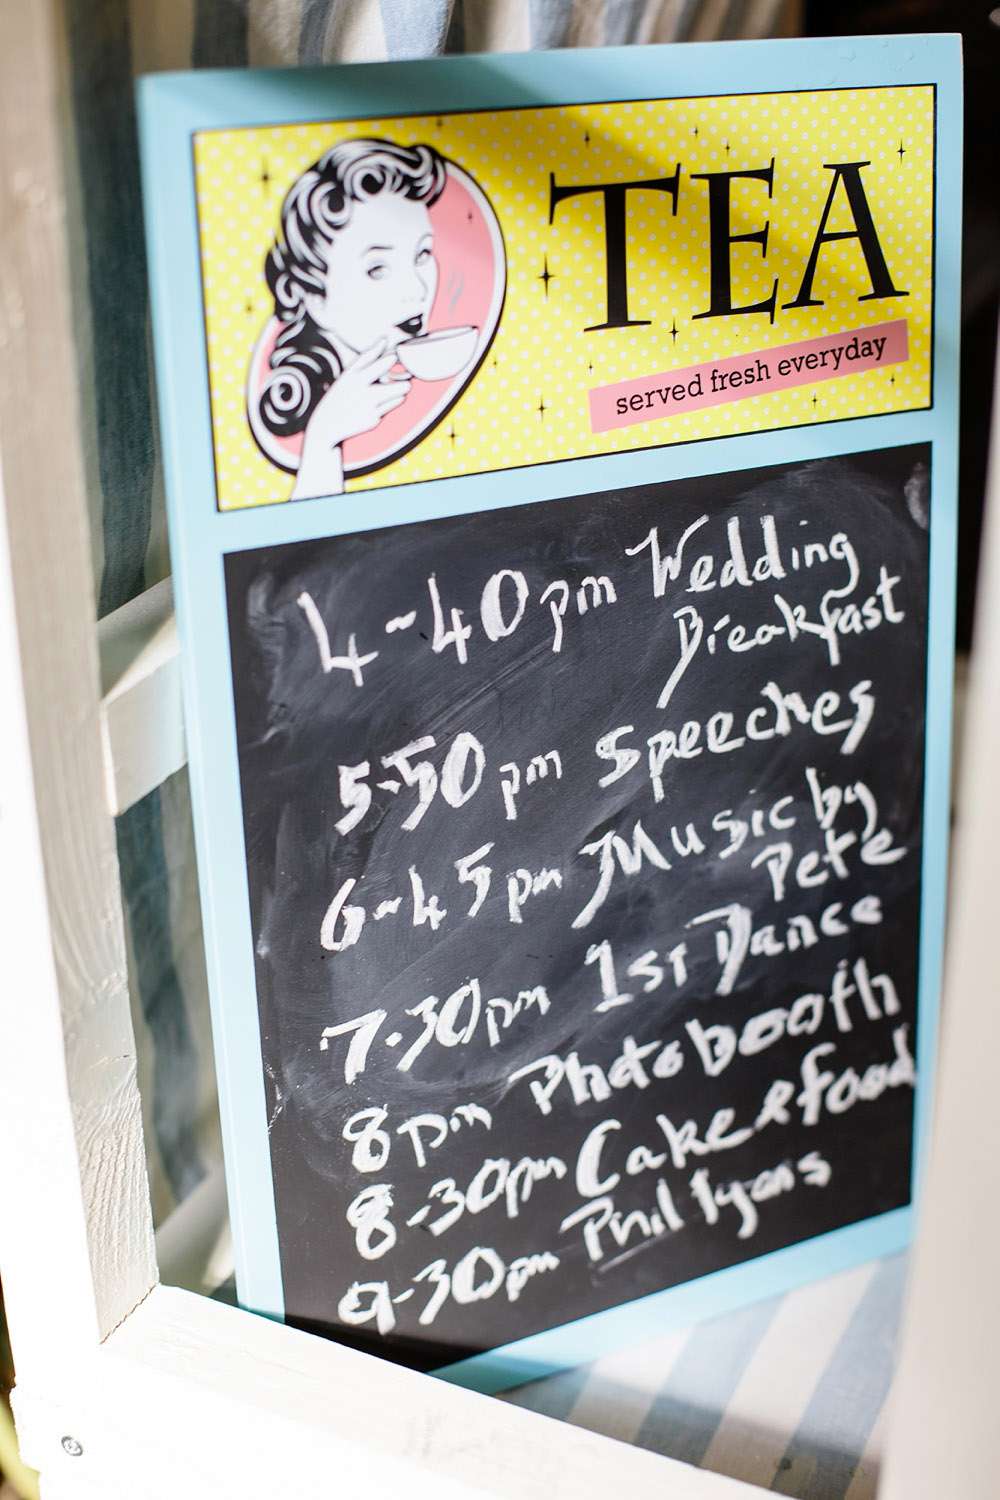 TEA
served fresh everyday
4-40pm Wedding
Breakfast
5-50pm Speeches
6-45pm Music by
Pete
7.30pm 1st Dance
8pm Photobooth
8-30pm Cake & food
9-30pm Phil lyons